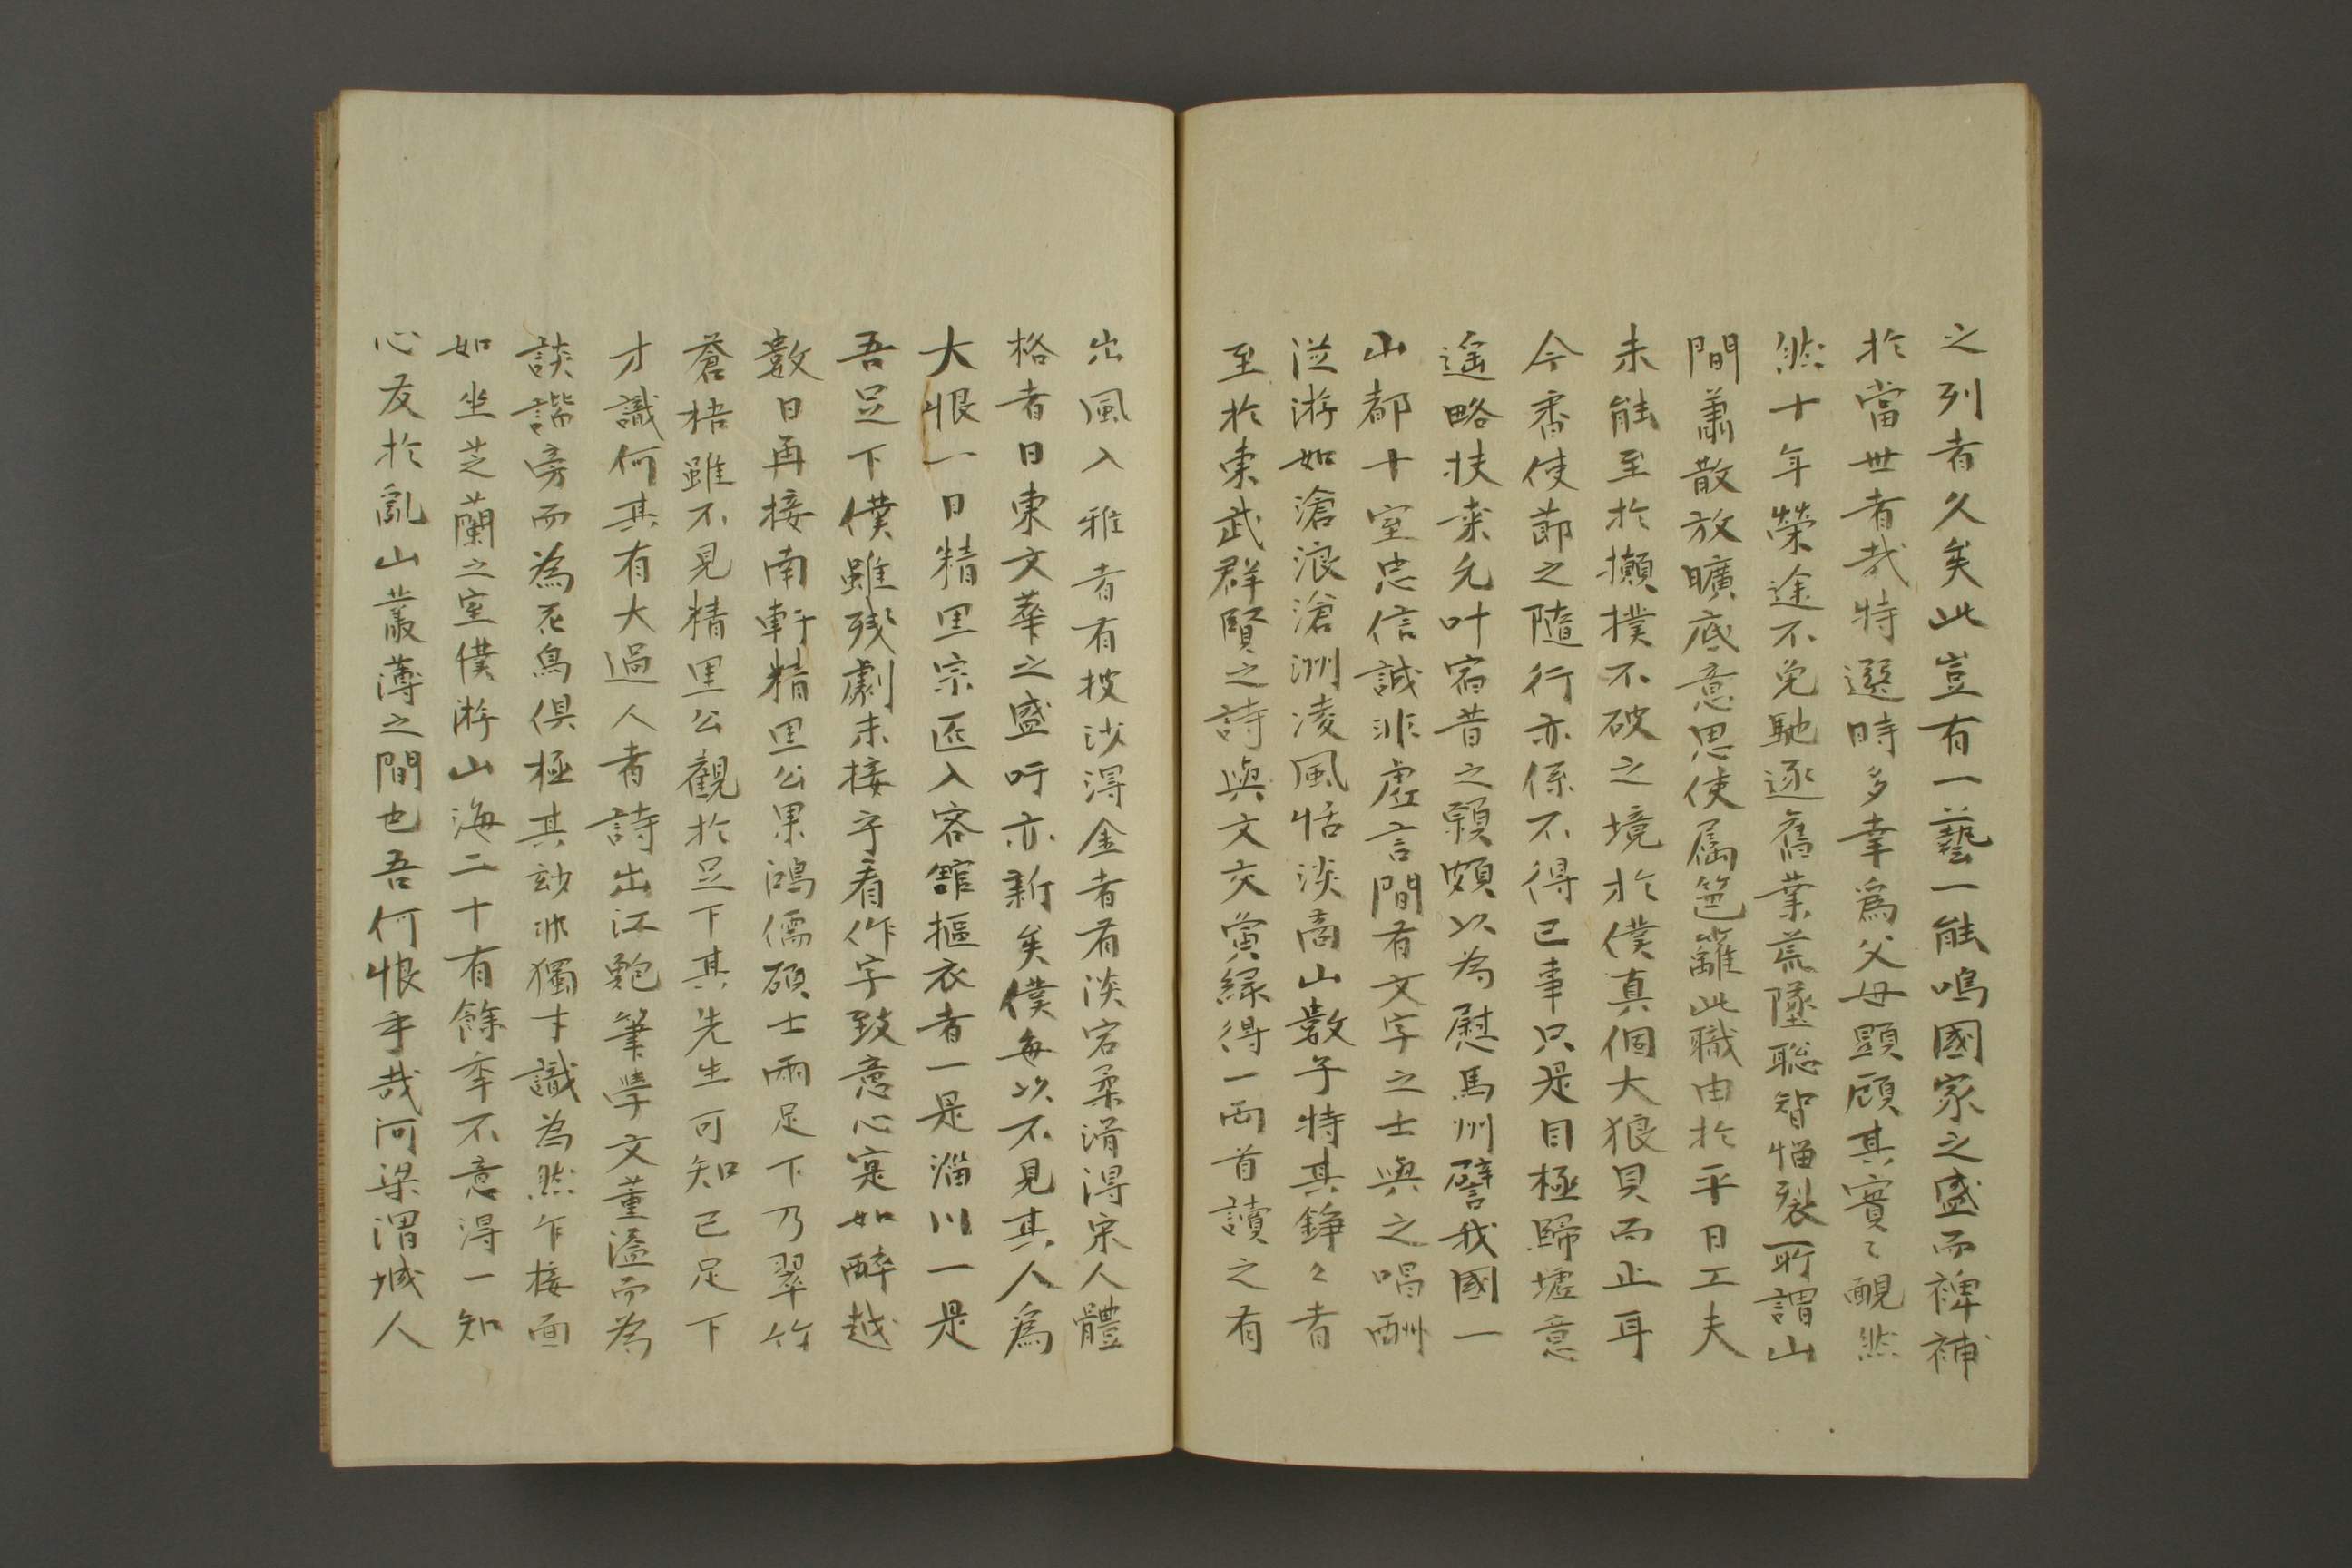 之列者久矣此豈有一藝一能鳴國家之盛而裨補
於當世者哉特選時多幸爲父母顕顧其實〻靦然
然十年榮途不免馳逐舊業荒墜聡智惱裂所謂山
間蕭散放曠底意思使属笆籬此職由於平日工夫
未能至於擷撲不破之境於僕真個大狼貝而止耳
今番使節之隨行亦係不得已事只是目極歸墟意
遥略扶桒允叶宿昔之願頗以為慰馬州譬我國一
山都十室忠信誠非虛言間有文字之士與之唱酬
從游如滄浪滄洲凌風恬淡商山數子特其錚々者
至於東武群賢之詩與文亦寅縁得一両首讀之有
出風入雅者有披沙淂金者有淡宕柔滑淂宋人體
格者日東文華之盛吁亦新矣僕每以不見其人爲
大恨一日精里宗匠入客舘摳衣者一是淄川一是
吾足下僕雖殘劇未接字看作字致意心寔如醉越
數日再接南軒精里公果鴻儒碩士而足下乃翠竹
蒼梧雖不見精里公觀於足下其先生可知已足下
才識何其有大過人者詩出江鮑筆学文董溢而為
談諧旁而為花鳥俱極其玅非獨才識為然乍接面
如坐芝蘭之室僕游山海二十有餘年不意淂一知
心友於亂山叢薄之間也吾何恨乎哉河梁渭城人